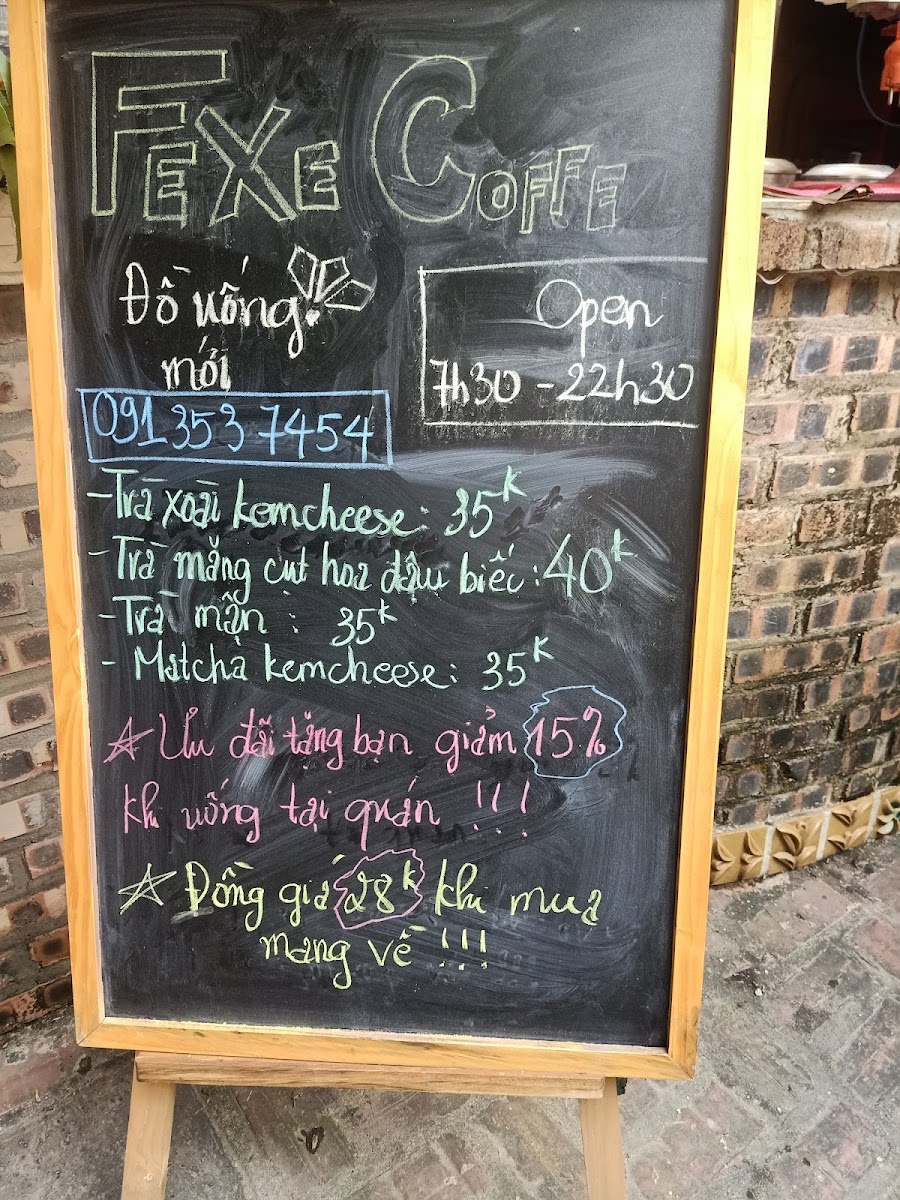 FEXE COFFE
Đồ uống!
mới
Open
7h30 - 22h30
091 353 7454
- Trà xoài kemcheese: 35k
- Trà măng cut hoa dậu biếc: 40k
- Trà mận : 35k
- Matcha kemcheese: 35k
☆ Ưu đãi tặng bạn giảm 15%
khi uống tại quán !!!
☆ Đồng giá 28k khi mua
mang về !!!